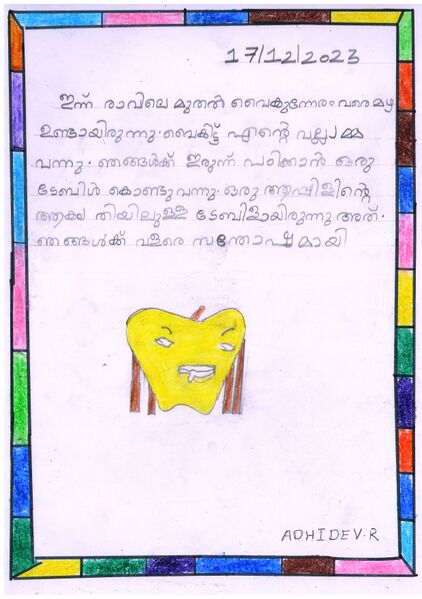 17/12/2023
ഇന്ന് രാവിലെ മുതൽ വൈകുന്നേരം വരെ മഴ
ഉണ്ടായിരുന്നു. വൈകിട്ട് എന്റെ വല്ലാമ്മ
വന്നു. ഞങ്ങൾക്ക് ഇരുന്ന് പഠിക്കാൻ ഒരു
ടേബിൾ കൊണ്ടുവന്നു. ഒരു ആപ്പിളിന്റെ
ആകൃതിയിലുള്ള ടേബിളായിരുന്നു അത്.
ഞങ്ങൾക്ക് വളരെ സന്തോഷമായി
ADHIDEV.R